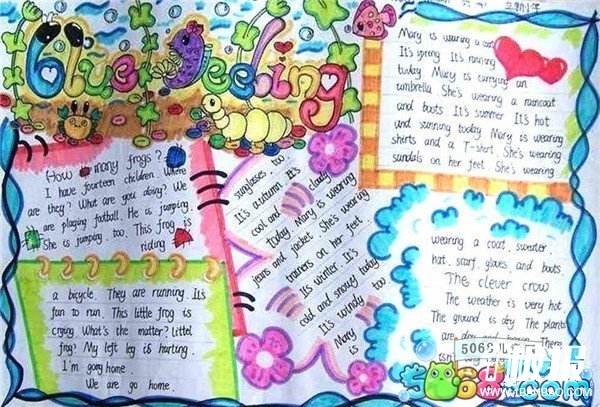 Blue Feeling
How many frogs?
I have fourteen children. Where
are they? What are you doing? We
are playing football. He is jumping.
She is jumping. too. This frog is
riding
a bicycle. They are running. It's
fun to run. This little frog is
crying. What's the matter? Littel
frog? My left leg is hurting.
I'm going home.
We are go home.
Mary is wearing a coat
It's spring It's raining
today Mary is carrying an
umbrella She's wearing a raincoat
and boots It's summer It's hot
and sunning today Mary is wearing
shirts and a T-shirt She's wearing
sandals on her feet She's wearing
sunglasses. too.
It's autumn It's
cool and cloudy
today Mary is wearing
jeans and jacket She's wearing
trainers on her feet.
It's winter It's
cold and snowy today
It's windy too
Mary is
wearing a coat, sweater,
hat, scarf, gloves, and boots.
The clever crow
The weather is very hot
The ground is dry The plants
are dry There
isn't
5068
.com